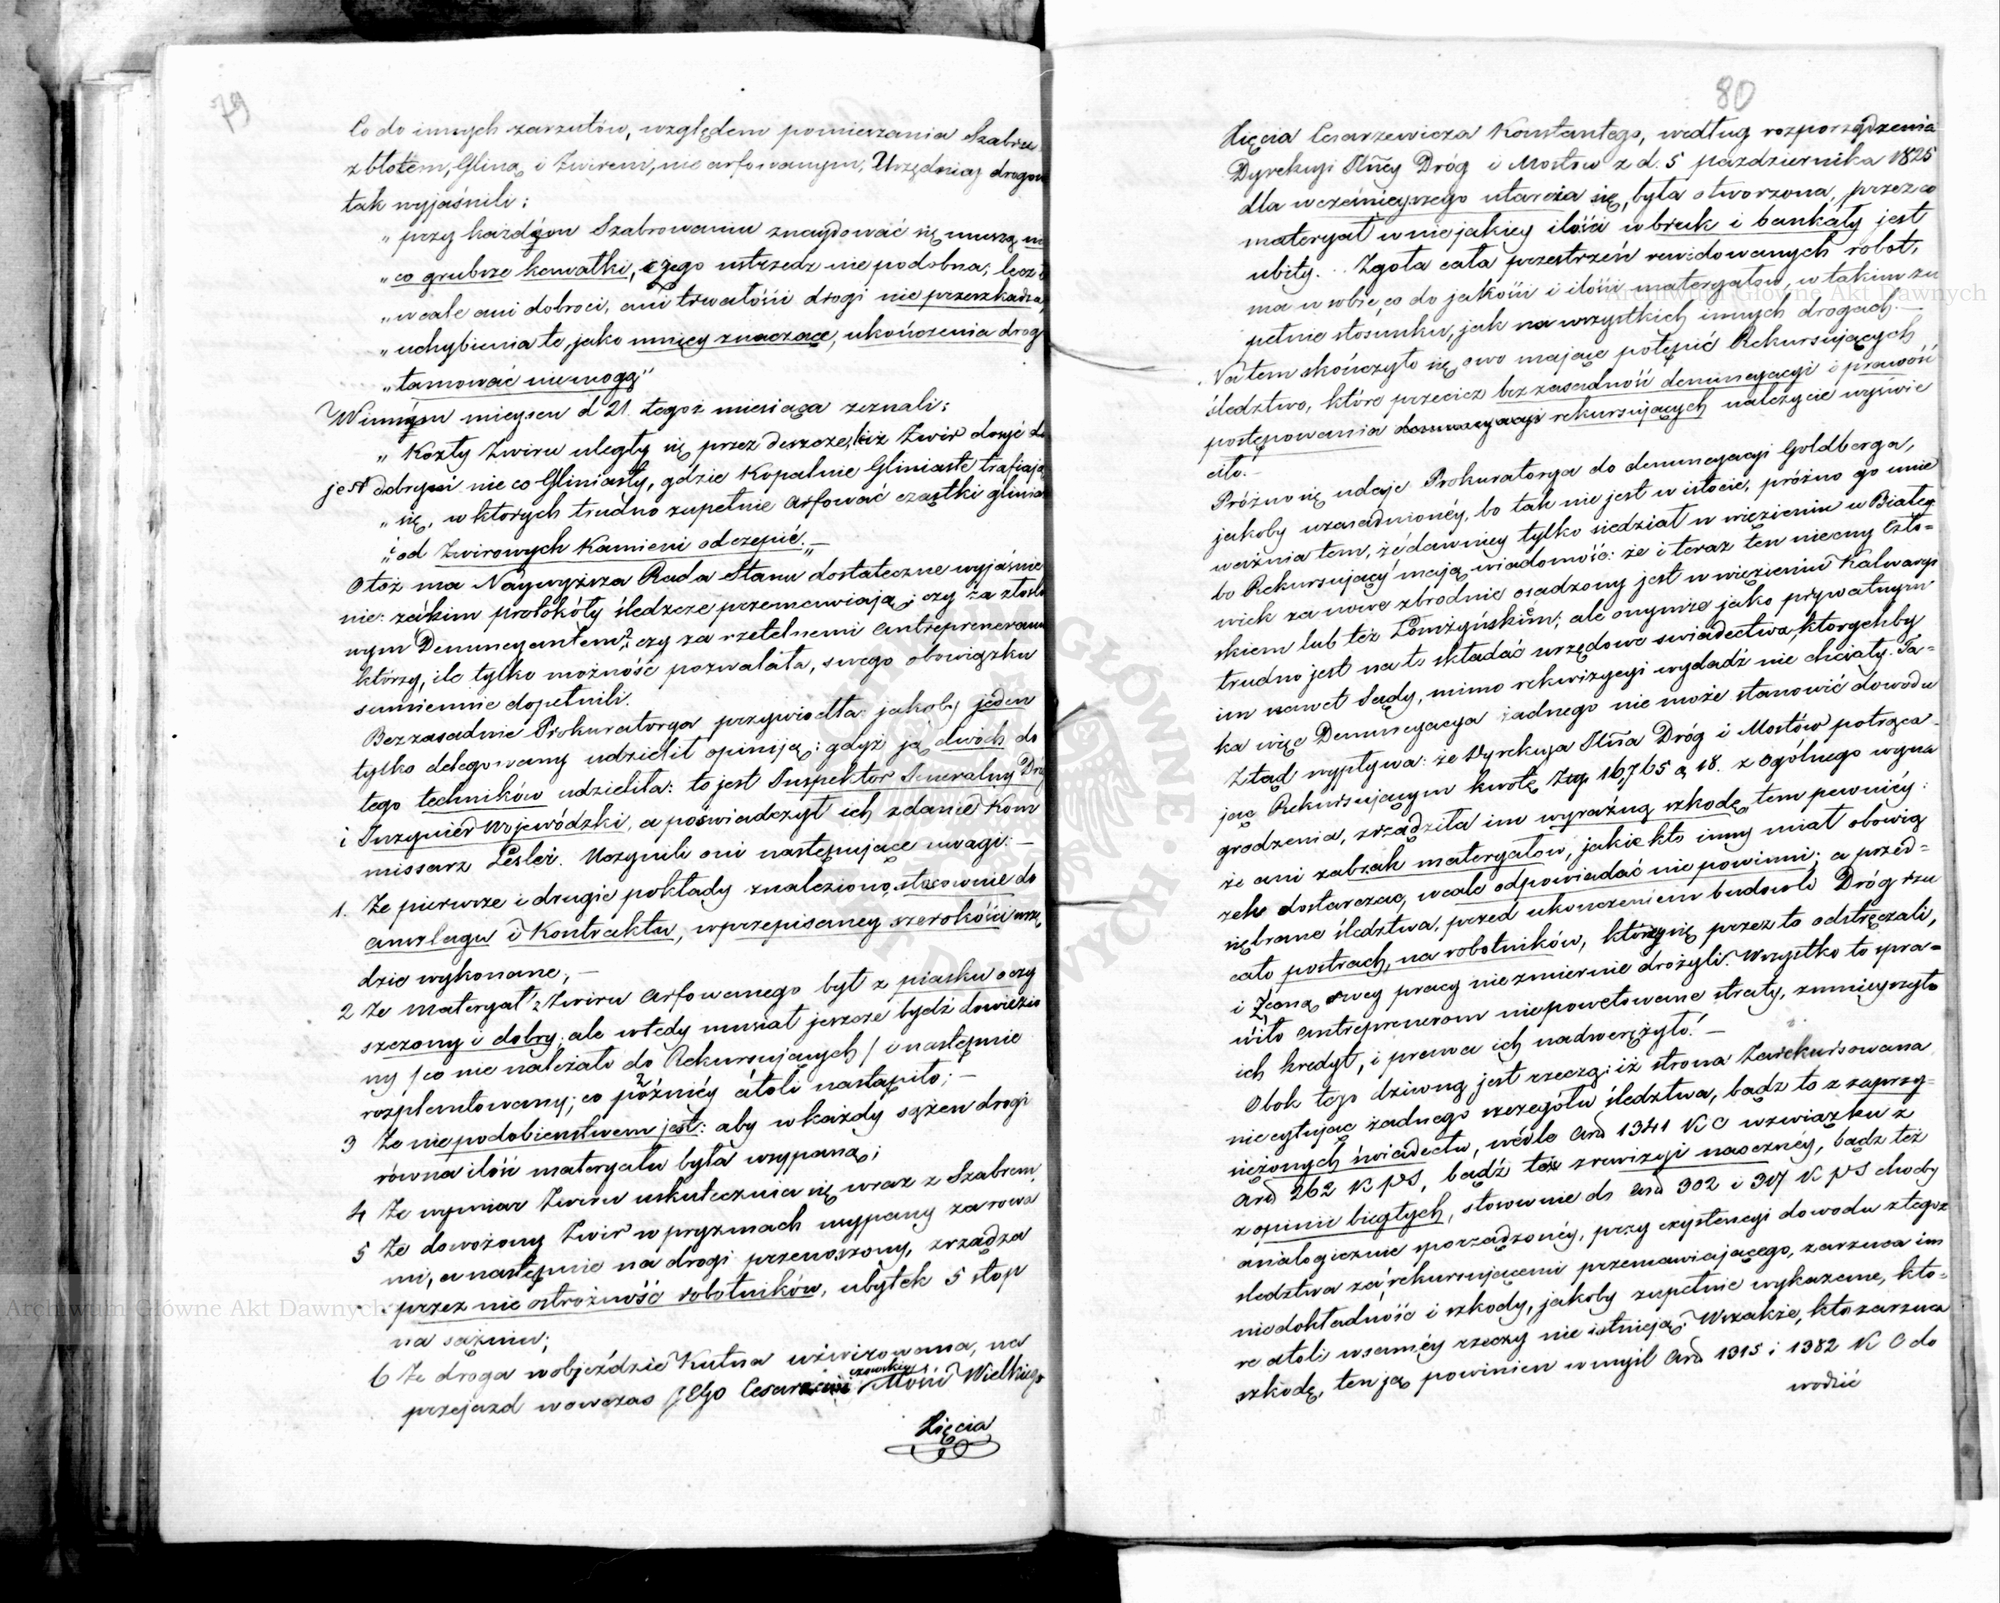 79
Co do innych zarzutów, względem pomieszania Szabru
z błotem, Gliną i Żwirem, nie arfowanym; Urzędnicy drogow
tak wyjaśnili:
„przy każdym Szabrowaniu znaydować się muszą
„co grubsze kawałki, czego ustrzedz nie podobna; lecz
„wcale ani dobroci, ani trwałości drogi nie przeszkadza,
„uchybienia te, jako mniey znaczące, ukończenia drog
„tamować niemogą"
W innym mieyscu d 21. tegoż miesiąca zeznali:
„Kozły Żwiru uległy się przez deszcze, iż Żwir dosyć
jest dobrym nie co Gliniasty, gdzie Kopalnie Gliniaste trafiają
„się, w ktorych trudno zupełnie arfować cząstki glinia
„od Żwirowych Kamieni odczepić."—
Otoż ma Naywyższa Rada Stanu dostateczne wyjaśnie
nie: za kim protokóły śledcze przemawiają; czy za złośli
wym Denuncyantem? czy za rzetelnemi Antreprenerami
którzy, ile tylko możność pozwalała, swego obowiązku
sumiennie dopełnili.
Bezzasadnie Prokuratorya przywiodła jakoby jeden
tylko delegowany udzielił opiniją: gdyż ją dwóch do
tego techników udzieliła: to jest Inspektor Jeneralny Dróg
i Inżynier Wojewódzki, a poświadczył ich zdanie Kom
missarz Lesler. Uczynili oni następujące uwagi:—
1. Że pierwsze i drugie pokłady znaleziono, stosownie do
Anszlagu i Kontraktu, w przepisaney szerokości wszę
dzie wykonane;—
2 Że Materyał Żwiru Arfowanego był z piasku oczy
szczony i dobry; ale wtedy musiał jeszcze bydź dowiezio
ny /co nie należało do Rekursujących/ i następnie
rozplantowany; co późniéy átoli nastąpiło;—
3 Że niepodobieństwem jest: aby w każdy sążen drogi
równa ilość materyału była wsypaną;
4 Że wymiar Żwiru uskutecznia się wraz z Szabrem,
5 Że dowożony Żwir w pryzmach wypany za rowa
mi, a następnie na drogi przenoszony, zrządza
przez nie ostrożność robotników, ubytek 5 stop
na sążniu;
6 Że droga w objeździe Kutna użwirowana, na
przejazd wowczas JEgo Cesarzewiczowskiey Mości Wielkiego
Xięcia
80
Xięcia Cesarzewicza Konstantego, według rozporządzenia
Dyrekcyi Jlney Dróg i Mostów z d. 5 pazdziernika 1825
dla wcześnieyszego utarcia się, była otworzona, przez co
materyał w niejakiey ilości w bruk i bankáty jest
ubity. Zgoła cała przestrzeń rewidowanych robot,
ma w sobie, co do jakości i ilości materyałow, w takim zu
pełnie stosunku, jak na wszystkich innych drogach.—
Na tem skończyło się owo mające potępić Rekursujących
śledztwo, które przecież bezzasadność denuncyacyi i prawość
postępowania rekursujących należycie wyświe
ciło.—
Próżno się udaje Prokuratorya do denuncyacyi Goldberga,
jakoby uzasadnionéy, bo tak nie jest w istocie, próżno go unie
ważnia tem, że dawniey tylko siedział w więzieniu w Białey
bo Rekursujący mają wiadomość: że i teraz ten niecny Czło=
wiek za nowe zbrodnie osadzony jest w więzieniu Kalwaryi
skiem lub też Łomżyńskiém; ale onymże jako prywatnym
trudno jest na to składać urzędowe swiadectwa, ktorychby
im nawet Sądy, mimo rekwizycyi wydadź nie chciały. Ta=
ka więc Denuncyacya żadnego nie może stanowić dowodu
Ztąd wypływa: że Dyrekcya Jlna Dróg i Mostów potrąca
jąc Rekursującym kwotę Złp 16,765 g 18. z ogólnego wyna
grodzenia, zrządziła im wyraźną szkodę, tem pewniéy:
że ani za brak materyałow, jakie kto inny miał obowią
zek dostarczać, wcale odpowiadać nie powinni; a przed=
się brane śledztwa, przed ukonczeniem budowli Dróg rzu
cało postrach, na robotników, którzy się przez to odstręczali,
i Ceną swey pracy niezmiernie drożyli. Wszystko to spra=
wiło Antreprenerom niepowetowane straty, zmnieyszyło
ich kredyt, i prawa ich nadwerężyło!—
Obok tego dziwną jest rzeczą: iż strona Zarekursowana
nie cytując żadnego szczegółu śledztwa, bądz to z zaprzy=
siężonych świadectw, wedle Ard 1341 K C w związku z
Ard 262 K P S, bądź też z rewizyi naoczney, bądz też
z opinii biegłych, stosownie do Ard 302 i 307 K P S choćby
analogicznie sporządzonéy, przy exystencyi dowodu z tegoż
sledztwa za rekursującemi przemawiającego, zarzuca im
niedokładność i szkody, jakoby zupełnie wykazane, kto=
re atoli w saméy rzeczy nie istnieją. Wszakże, kto zarzuca
szkodę, ten ją powinien w myśl Ard 1315 i 1382 K C do
wodzić
Archiwum Główne Akt Dawnych
Archiwum Główne Akt Dawnych
ARCHIWUM GŁÓWNE AKT DAWNYCH